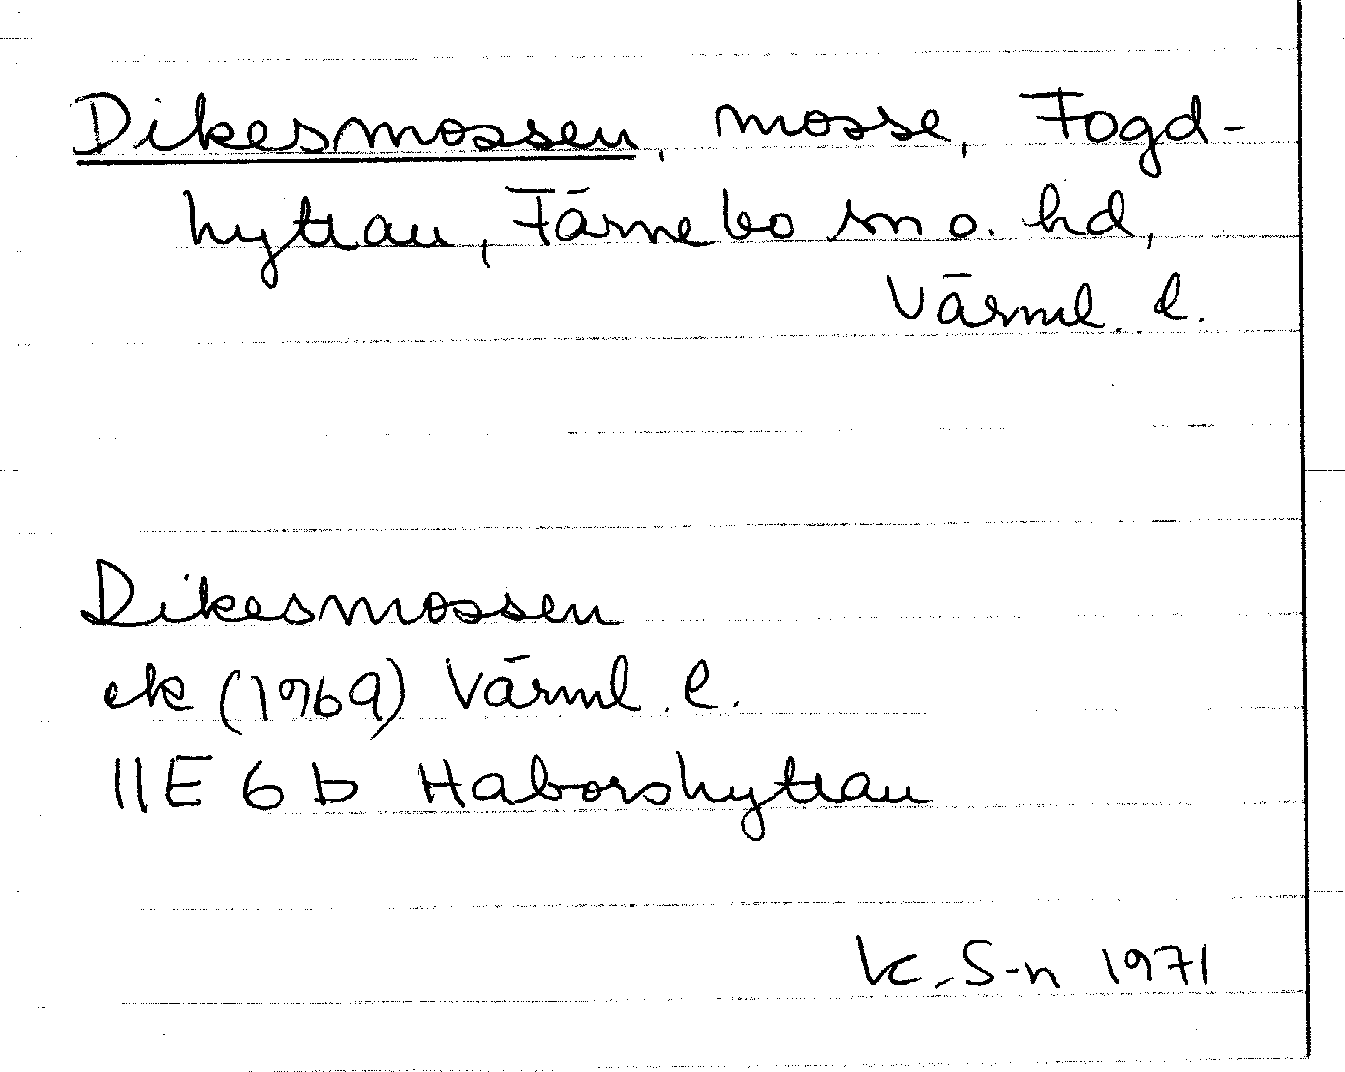 Dikesmossen, mosse, Fogd-
hyttan, Färnebo sn o. hd,
Värml. l.
Dikesmossen
ek (1969) Värml. l.
11E 6 b Haborshyttan
K. S-n 1971